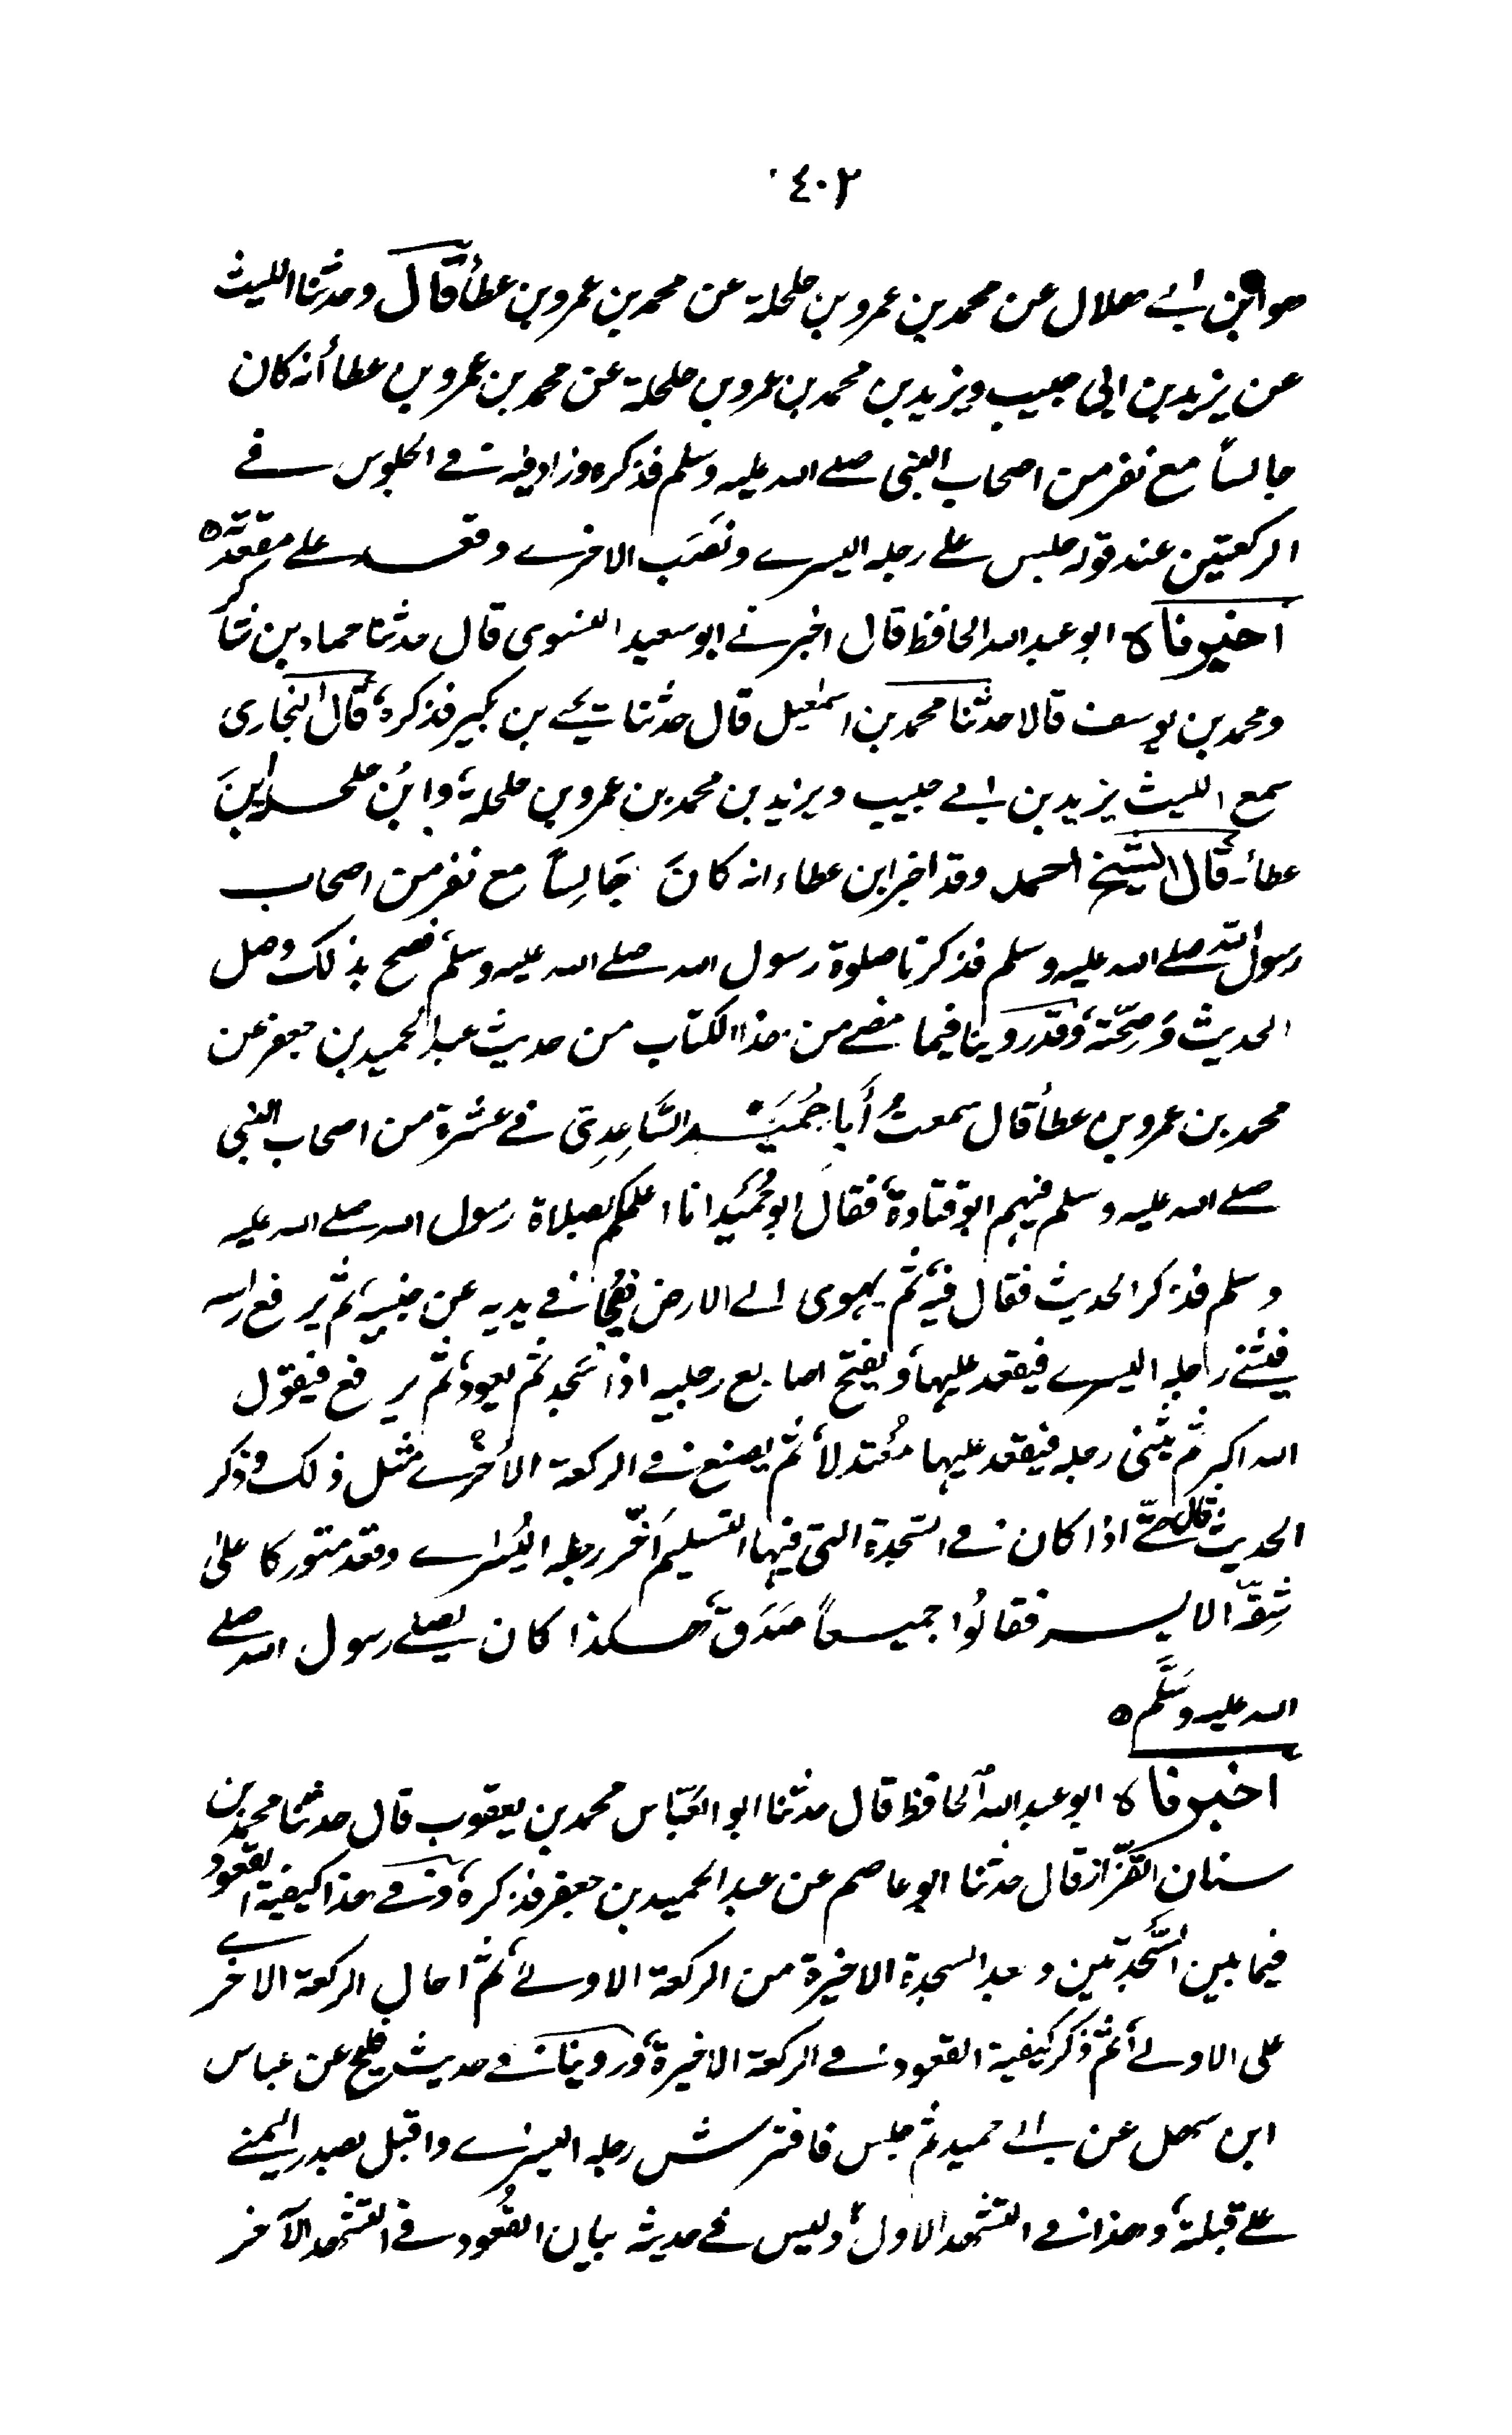 ٤٠٢
هو ابن ابي هلال عن محمد بن عمرو بن حلحلة عن محمد بن عمرو بن عطاء قال وحدثنا الليث
عن يزيد بن ابى حبيب ويزيد بن محمد بن عمرو بن حلحلة عن محمد بن عمرو بن عطاء أنه كان
جالساً مع نفر من اصحاب النبى صلى الله عليه وسلم فذكره وزاد فيه في الجلوس في
الركعتين عند قوله جلس على رجله اليسرى ونصَب الاخرى وقعد على مقعدته ٥
اخبرناه ابو عبد الله الحافظ قال اخبرني ابو سعيد النسوى قال حدثنا حماد بن شاكر
ومحمد بن يوسف قالا حدثنا محمد بن اسمٰعيل قال حدثنا يحيى بن بكير فذكره، قال البخارى
سمع الليث يزيد بن ابي حبيب ويزيد بن محمد بن عمرو بن حلحلة، وابن حلحلة ابنَ
عطاء. قال الشيخ احمد وقد اخبر ابن عطاء انه كانَ جَالِساً مع نفر من اصحاب
رسول الله صلى الله عليه وسلم فذكرنا صلوة رسول الله صلى الله عليه وسلم، فصح بذلك وصل
الحديث وَصِحّته، وقد روينا فيما مضى من هذا الكتاب من حديث عبد الحميد بن جعفر عن
محمد بن عمرو بن عطاء قال سمعتُ أَبا حُمَيْد السَّاعِدِىّ في عشرة من اصحاب النبى
صلى الله عليه وسلم فيهم ابو قتادة، فقال ابو حُمَيْد انا اعلمكم بصلاة رسول الله صلى الله عليه
وسلم فذكر الحديث فقال فيه، ثم يهوى الى الارض فيجافي يديه عن جنبيه، ثم يرفع راسه
فيثني رجله اليسرى فيقعد عليها، ويفتح اصابع رجليه اذا سَجد ثم يعود، ثم يرفع فيقول
الله اكبر ثم يثنى رجله فيقعد عليها مُعتدلاً، ثم يصنع في الركعة الأُخرى مثل ذلك وذكر
الحديث قال حتّى اذا كان في السّجدة التى فيها التسليم اَخّر رجله اليُسرى وقعد متوركا علىٰ
شِقّه الايسر فقالُوا جميعاً صَدَقَ، هكذا كان يصلي رسول الله صلى
الله عليه وسَلَّم ٥
اخبرناه ابو عبد الله الحافظ قال حدثنا ابو العَبّاس محمد بن يعقوب قال حدثنا محمد بن
سنان القزّاز قال حدثنا ابو عاصم عن عبد الحميد بن جعفر فذكره، وفي هذا كيفية القعود
فيما بين السَّجدتين وبعد السجدة الاخيرة من الركعة الاولى، ثم احال الركعة الاخرى
على الاولى، ثم ذكر كيفية القعود في الركعة الاخيرة، وروينا في حديث فليح عن عباس
ابن سهل عن ابي حميد ثم جلس فافترش رجله اليسرى واقبل بصدر اليمنى
على قبلته، وهذا في التشهد الاول، وليس في حديثه بيان القُعود في التشهد الآخر